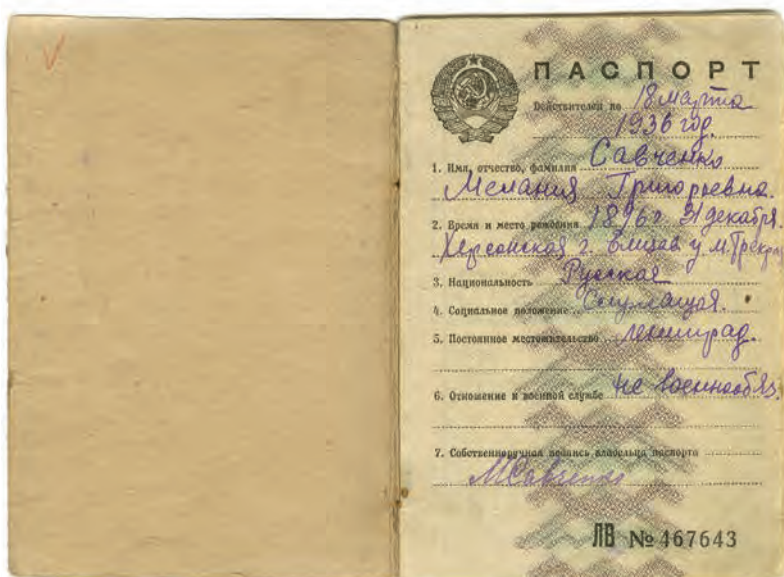 ПАСПОРТ
Действителен по 18 марта
1936 год.
1. Имя, отчество, фамилия Савченко
Мелания Григорьевна.
2. Время и место рождения 1896 г. 31 декабря.
Херсонская г. у. м.
3. Национальность Русская
4. Социальное положение Служащая.
5. Постоянное местожительство Ленинград.
6. Отношение к военной службе не военнообяз.
7. Собственноручная подпись владельца паспорта
МСавченко
ЛВ № 467643